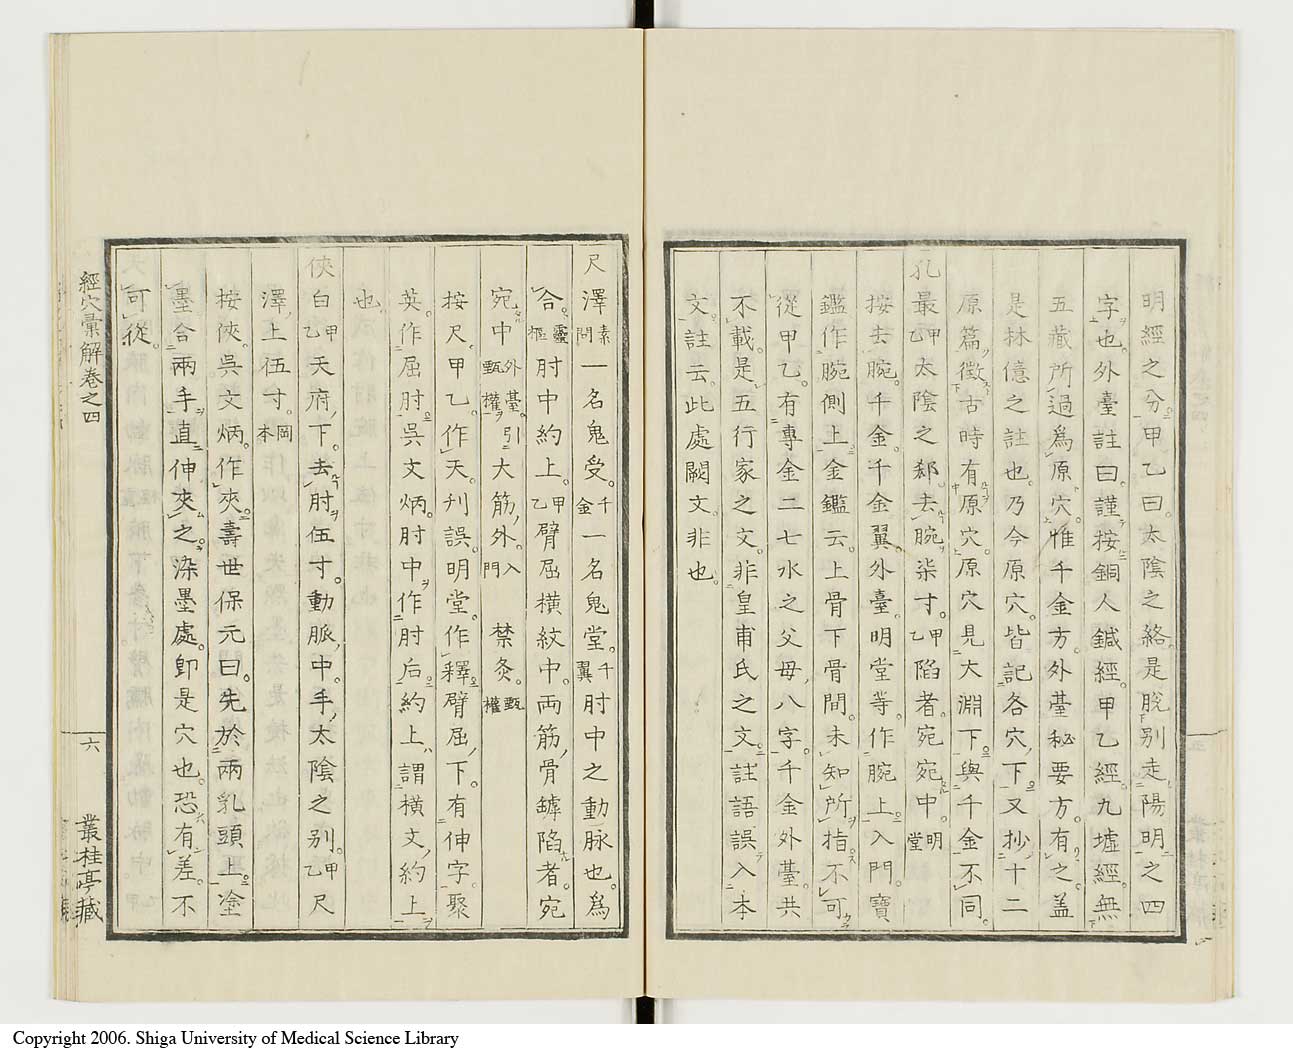 明經之分甲乙曰太陰之絡是脫別走陽明之四
字也外臺註曰謹按銅人鍼經甲乙經九墟經無
五藏所過為原穴惟千金方外臺秘要方有之蓋
是林億之註也乃今原穴皆記各穴下又抄十二
原篇徵古時有原穴原穴見大淵下與千金不同
孔最甲乙太陰之郄去腕柒寸甲乙陷者宛宛中明堂
按去腕千金千金翼外臺明堂等作腕上入門寶
鑑作腕側上金鑑云上骨下骨間未知所指不可
從甲乙有專金二七水之父母八字千金外臺共
不載是五行家之文非皇甫氏之文註語誤入本
文註云此處闕文非也
尺澤素問一名鬼受千金一名鬼堂千翼肘中之動脉也為
合靈樞肘中約上甲乙臂屈橫紋中両筋骨罅陷者宛
宛中外臺引甄權大筋外入門禁灸甄權
按尺甲乙作天刋誤明堂作釋臂屈下有伸字聚
英作屈肘吳文炳肘中作肘后約上謂橫文約上
也
俠白甲乙天府下去肘伍寸動脈中手太陰之別甲乙尺
澤上伍寸岡本
按俠吳文炳作夾壽世保元曰先於兩乳頭上塗
墨合兩手直伸夾之染墨處卽是穴也恐有差不
可從
經穴彙解卷之四
六
叢桂亭藏
Copyright 2006. Shiga University of Medical Science Library